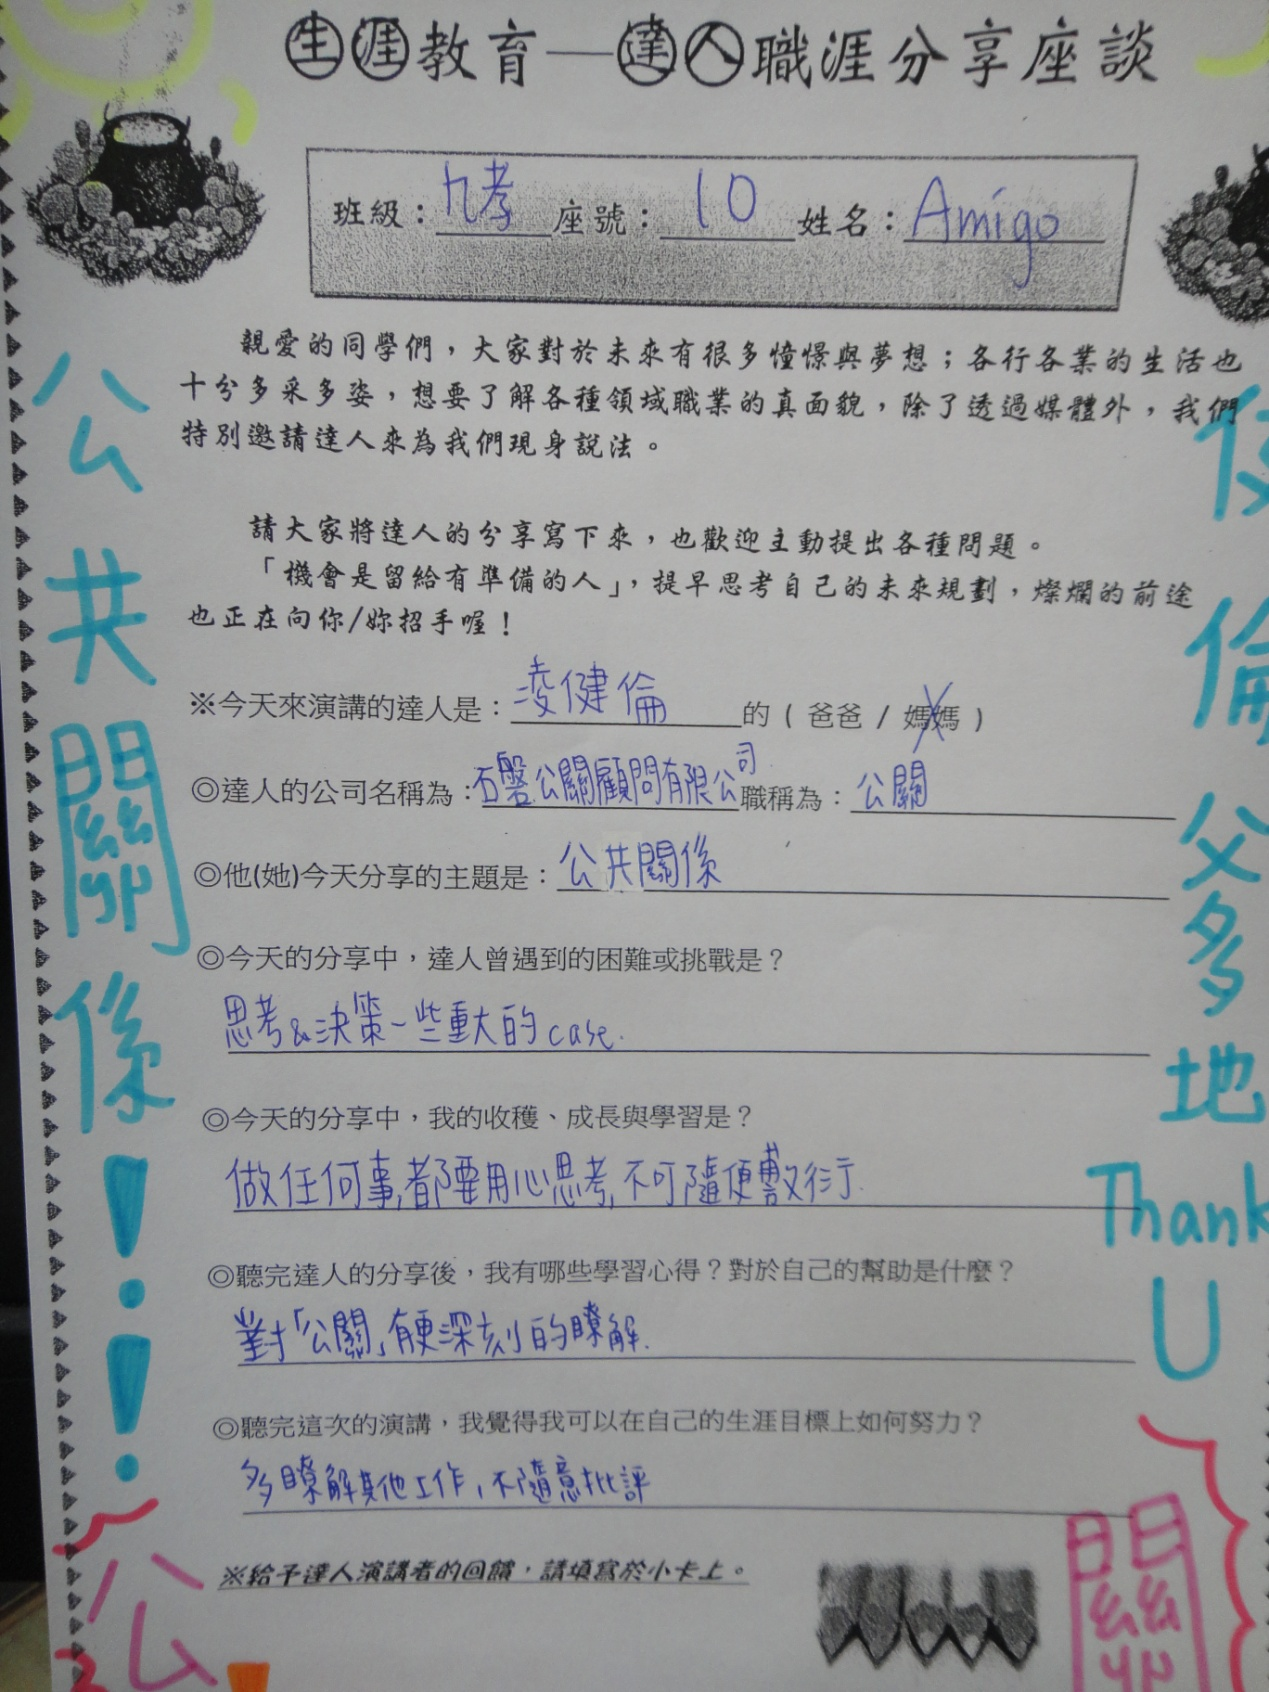 生涯教育—達人職涯分享座談
班級：九孝 座號：10 姓名：Amigo
親愛的同學們，大家對於未來有很多憧憬與夢想；各行各業的生活也
十分多采多姿，想要了解各種領域職業的真面貌，除了透過媒體外，我們
特別邀請達人來為我們現身說法。
請大家將達人的分享寫下來，也歡迎主動提出各種問題。
「機會是留給有準備的人」，提早思考自己的未來規劃，燦爛的前途
也正在向你/妳招手喔！
※今天來演講的達人是：凌健倫 的（爸爸 / 媽媽）
◎達人的公司名稱為：石磐公關顧問有限公司 職稱為：公關
◎他(她)今天分享的主題是：公共關係
◎今天的分享中，達人曾遇到的困難或挑戰是？
思考&決策一些重大的case.
◎今天的分享中，我的收穫、成長與學習是？
做任何事,都要用心思考,不可隨便敷衍.
◎聽完達人的分享後，我有哪些學習心得？對於自己的幫助是什麼？
對「公關」有更深刻的瞭解.
◎聽完這次的演講，我覺得我可以在自己的生涯目標上如何努力？
多瞭解其他工作，不隨意批評
※給予達人演講者的回饋，請填寫於小卡上。
公共關係！！
倫父多地
Thank
U
公
關